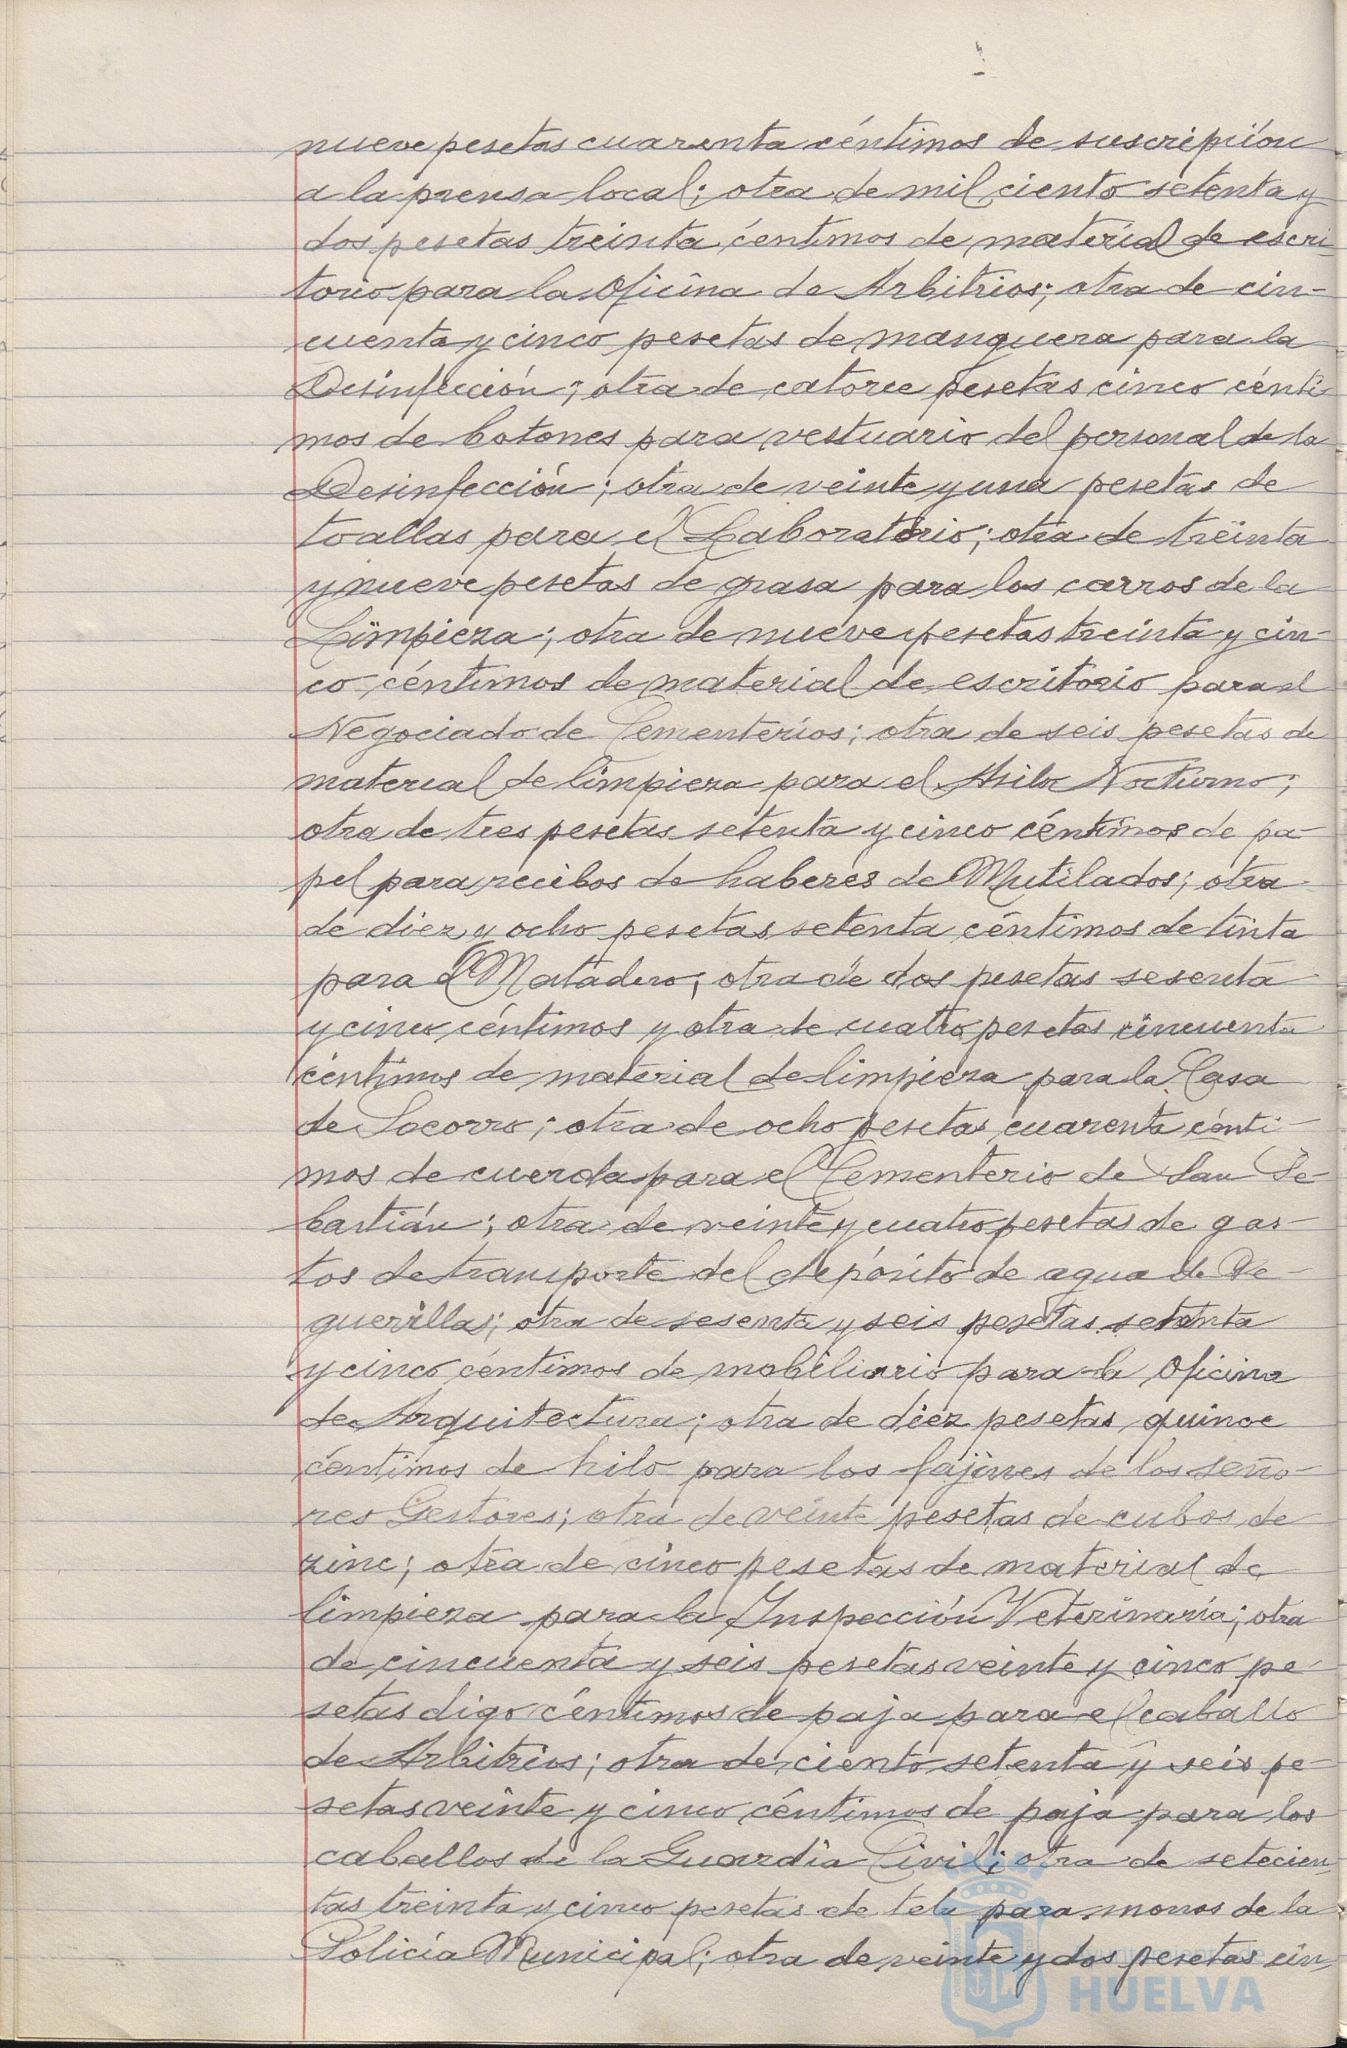 nueve pesetas cuarenta céntimos de suscripción
a la prensa local; otra de mil ciento setenta y
dos pesetas treinta céntimos de material de escri-
torio para la Oficina de Arbitrios; otra de cin-
cuenta y cinco pesetas de manguera para la
Desinfección; otra de catorce pesetas cinco cénti-
mos de botones para vestuario del personal de la
Desinfección; otra de veinte y una pesetas de
toallas para el Laboratorio; otra de treinta
y nueve pesetas de grasa para los carros de la
Limpieza; otra de nueve pesetas treinta y cin-
co céntimos de material de escritorio para el
Negociado de Cementerios; otra de seis pesetas de
material de limpieza para el Asilo Nocturno;
otra de tres pesetas setenta y cinco céntimos de pa-
pel para recibos de haberes de Mutilados; otra
de diez y ocho pesetas setenta céntimos de tinta
para el Matadero; otra de dos pesetas sesenta
y cinco céntimos y otra de cuatro pesetas cincuenta
céntimos de material de limpieza para la Casa
de Socorro; otra de ocho pesetas cuarenta cénti-
mos de cuerda para el Cementerio de San Se-
bastián; otra de veinte y cuatro pesetas de gas-
tos de transporte del depósito de agua de Pe-
guerillas; otra de sesenta y seis pesetas setenta
y cinco céntimos de mobiliario para la Oficina
de Arquitectura; otra de diez pesetas quince
céntimos de hilo para los fajines de los seño-
res Gestores; otra de veinte pesetas de cubos de
zinc; otra de cinco pesetas de material de
limpieza para la Inspección Veterinaria; otra
de cincuenta y seis pesetas veinte y cinco pe-
setas digo céntimos de paja para el caballo
de Arbitrios; otra de ciento setenta y seis pe-
setas veinte y cinco céntimos de paja para los
caballos de la Guardia Civil; otra de setecien-
tas treinta y cinco pesetas de tela para monos de la
Policía Municipal; otra de veinte y dos pesetas cin-
HUELVA